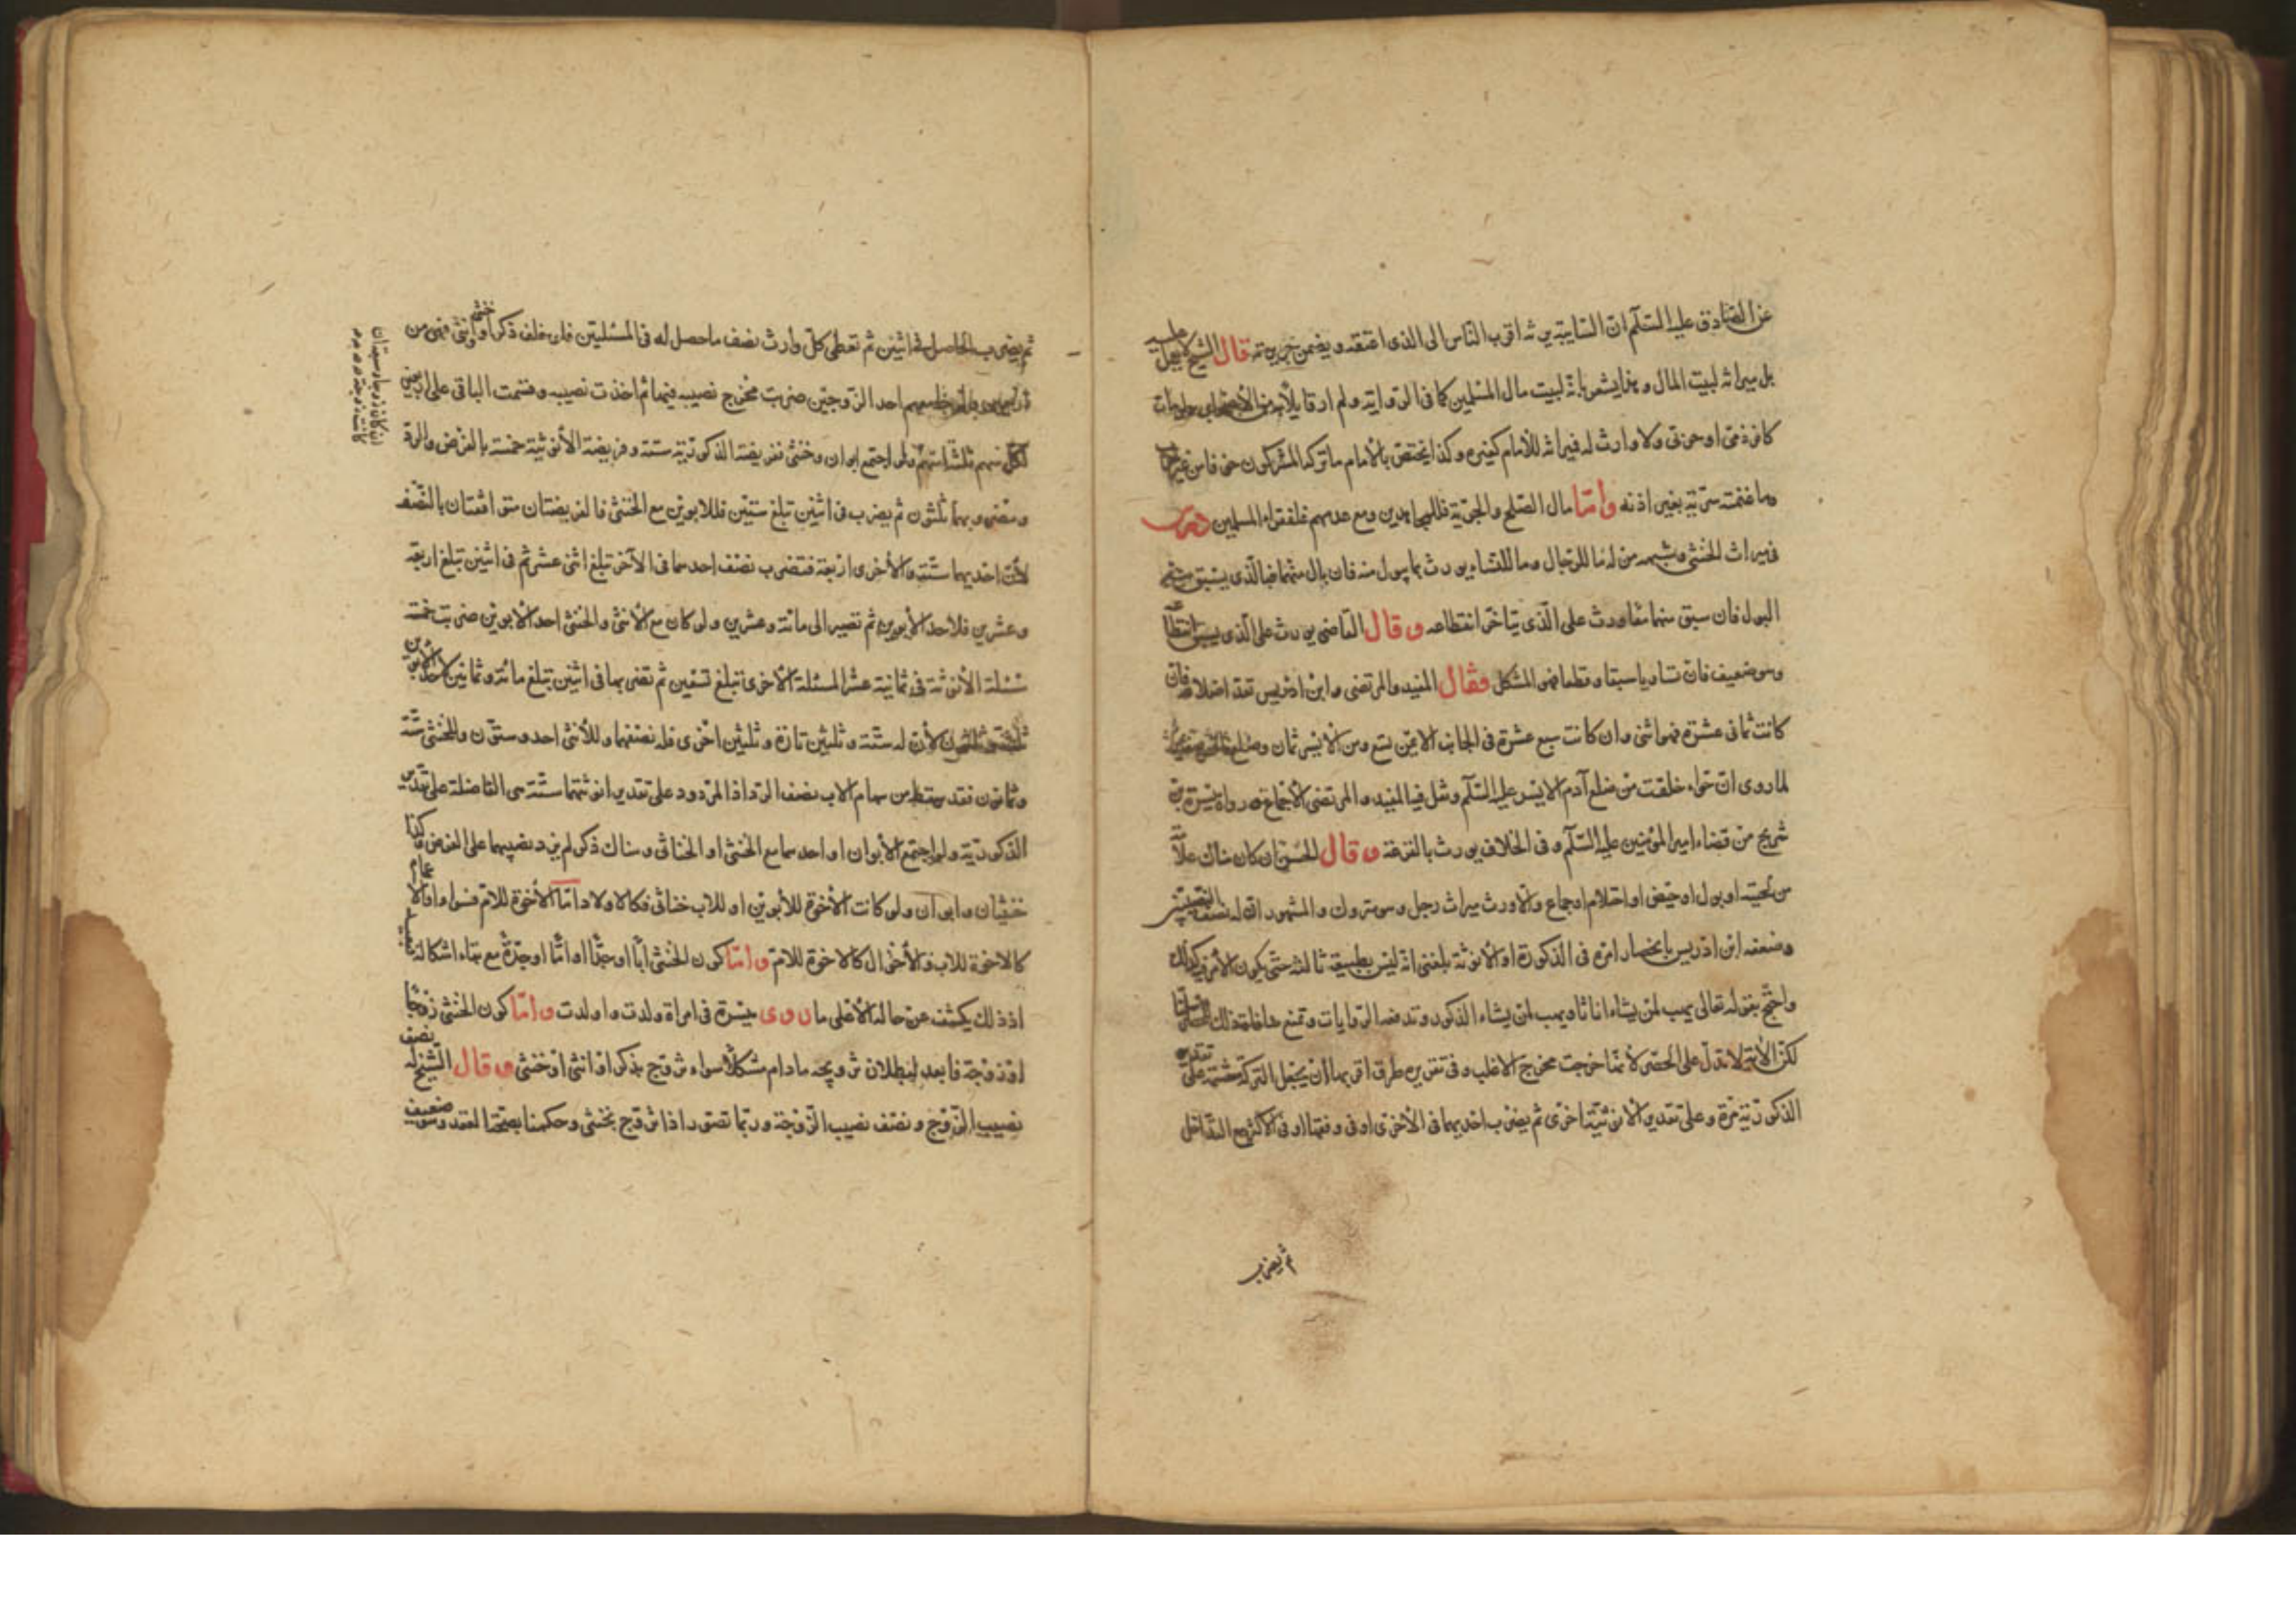 عن الصادق عليه السلم ان السايبة يرثه اقرب الناس الى الذى اعتقه ويضمن جريرته قال الشيخ
بل ميراثه لبيت المال وهذا يشعر بانه لبيت مال المسلمين كما فى الرواية ولم ارقائلا به من الأصحاب ولو مات
كافر ذمى او حربى ولا وارث له فميراثه للأمام كغيره وكذا يختص بالأمام ما تركه المشركون خوفا من غير حرب
وما غنمته سرية بغير اذنه وأما مال الصلح والجزية فللمجاهدين ومع عدمهم فلفقراء المسلمين درس
فى ميراث الخنثى وشبهه من له ما للرجال وما للنساء يورث بما يبول منه فان بال منهما فبالذى يسبق منه
البول فان سبق منهما معا ورث على الذى يتاخر انقطاعه وقال القاضى يورث على الذى يسبق انقطاعه
وهو ضعيف فان تساويا سبقا وقطعا فهو المشكل فقال المفيد والمرتضى وابن ادريس تعد اضلاعه فان
كانت ثمانى عشرة فهو انثى وان كانت سبع عشرة فى الجانب الايمن تسع ومن الأيسر ثمان
لما روى ان حواء خلقت من ضلع آدم الايسر عليه السلم ونقل فيه المفيد والمرتضى الأجماع ورواه ميسرة بن
شريح من قضاء امير المؤمنين عليه السلم وفى الخلاف يورث بالقرعة وقال الحسن ان كان هناك علامة
من لحية او بول او حيض او احتلام او جماع والا ورث ميراث رجل وهو متروك والمشهور ان له نصف النصيبين
وضعفه ابن ادريس بانحصار امره فى الذكورة او الأنوثة بلغنى انه ليس بطبيعة ثالثة حتى يكون الأمر كذلك
واحتج بقوله تعالى يهب لمن يشاء اناثا ويهب لمن يشاء الذكور وتدفعه الروايات وتمنع منافاة ذلك
لكن الآية لا تدل على الحصر لأنها خرجت مخرج الاغلب وفى تقريره طرق اقربها أن يجعل التركة مقسمة على تقدير
الذكورية مرة وعلى تقدير الأنوثية اخرى ثم يضرب احديهما فى الأخرى او فى وفقها او فى الأكثر مع التداخل
ثم يضرب
ثم يضرب الحاصل فى اثنين ثم تعطى كل وارث نصف ماحصل له فى المسئلتين فلو خلف ذكرا وانثى وخنثى فهى من
احد الزوجين ضربت مخرج نصيبه فيها ثم اخذت نصيبه وقسمت الباقى على اربعين
لكل سهم ثلثة اسهم ولو اجتمع ابوان وخنثى ففريضة الذكورية ستة وفريضة الأنوثية خمسة بالفرض والرد
ومضروبهما ثلثون ثم يضرب فى اثنين تبلغ ستين فللابوين مع الخنثى فالفريضتان متوافقتان بالنصف
لأن احديهما ستة والأخرى اربعة فتضرب نصف احدهما فى الآخر تبلغ اثنى عشر ثم فى اثنين تبلغ اربعة
وعشرين فلأحد الأبوين ثم تصير الى مائة وعشرين ولو كان مع الأنثى والخنثى احد الأبوين ضربت خمسة
مسئلة الأنوثة فى ثمانية عشر المسئلة الأخرى تبلغ تسعين ثم تضربها فى اثنين تبلغ مائة وثمانين لأحد الابوين
ثلثة وثلثون لأن له ستة وثلثين تارة وثلثين اخرى فله نصفهما وللأنثى احد وستون وللخنثى ستة
وثمانون فقد سقط من سهام الاب نصف الرد اذا المردود على تقدير انوثتهما ستة هى الفاضلة على تقدير
الذكورية ولو اجتمع الأبوان او احدهما مع الخنثى او الخناثى وهناك ذكر لم يزد نصيبهما على الفرض وكذا
خنثيان وابوان ولو كانت الأخوة للأبوين او للاب خناثى فكالاولاد اما الأخوة للام فسواء والاعمام
كالاخوة للاب والأخوال كالاخوة للام واما كون الخنثى ابا او جدا او اما او جدة مع بقاء اشكاله فبعيد
اذ ذلك يكشف عن حاله الأعلى ما روى ميسرة فى امراة ولدت واولدت واما كون الخنثى زوجا
او زوجة فابعد لبطلان تزويجه مادام مشكلا سواء تزوج بذكر او انثى او خنثى وقال الشيخ له نصف
نصيب الزوج ونصف نصيب الزوجة وربما تصور اذا تزوج بخنثى وحكمنا بصحة العقد وهو ضعيف